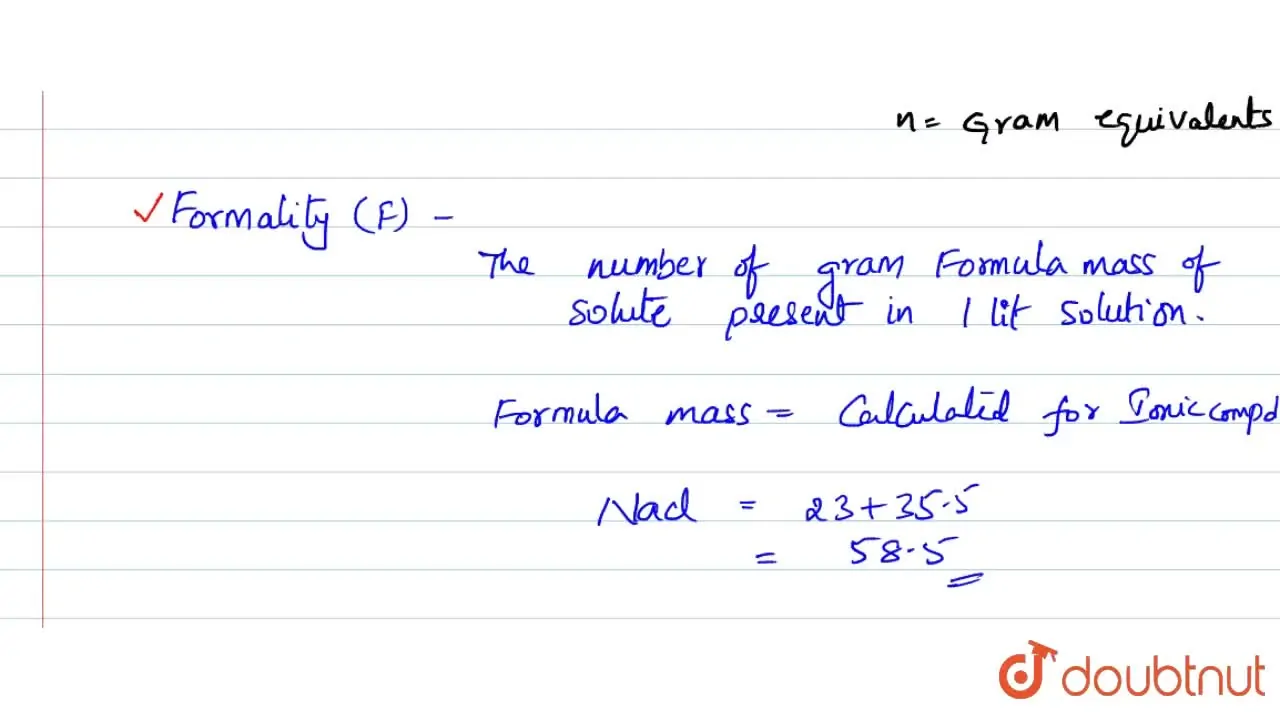 n = Gram equivalents
✓ Formality (F) -
The number of gram Formula mass of
solute present in 1 lit solution.
Formula mass = Calculated for Ionic compd
Nacl = 23 + 35.5
= 58.5
doubtnut